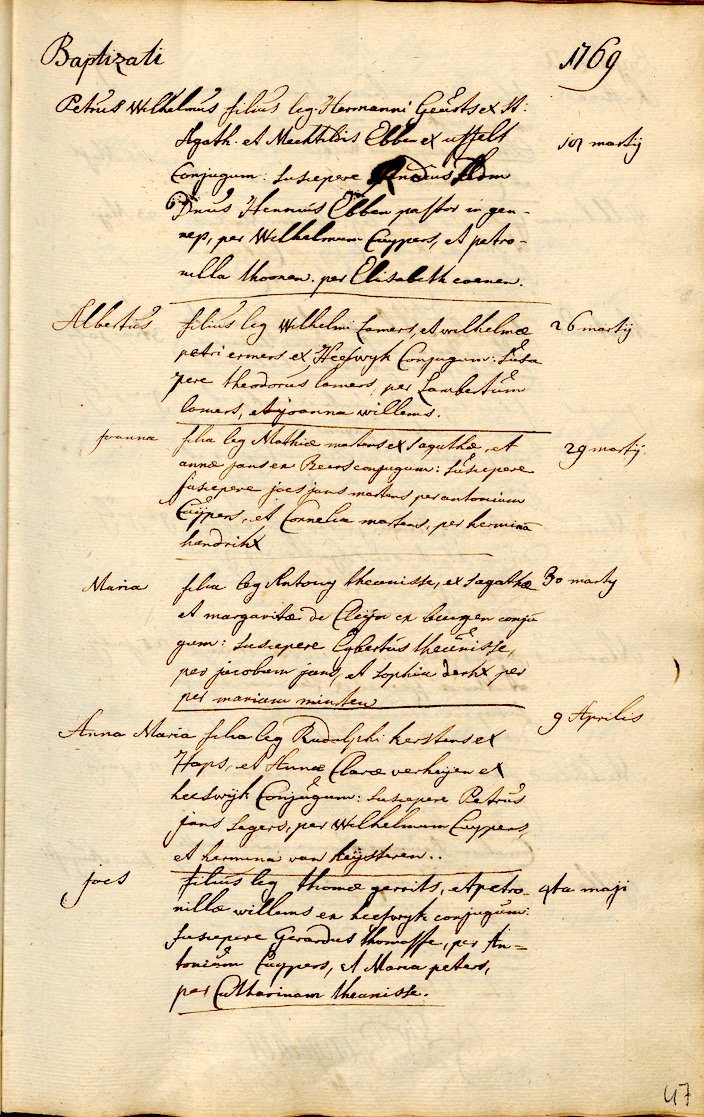 Baptizati 1769
Petrus Wilhelmus filius leg. Hermanni Geurts ex St:
Agath. et Mechtildis Ebben ex uffelt
Conjugum: Susiepere
Dnus Henricus Ebben pastor in gen-
nep, per Wilhelmum Cuypers, et petro-
nilla thoonen. per Elisabeth coenen.
martij
Albertus filius leg Wilhelmi Lamers, et wilhelmæ
petri ermers ex Heeswyk Conjugum: Susie
pere theodorus lamers, per Lambertum
lamers, et joanna willems.
26 martij
joanna filia leg Mathiæ martens ex s agathæ, et
annæ jansen ex Beers conjugum: Susiepere
susiepere joes jans martens per antonium
Cuÿpers, et Cornelia martens, per hermina
hendrikx
29 martij
Maria filia leg Antony theunisse, ex s agathæ
et margaritæ de Cleijn ex beugen conju
gum: Susiepere Egbertus theunisse,
per jacobum jans, et sophia derkx per
per mariam minten
30 martij
Anna Maria filia leg Rudolphi kerstens ex
Haps, et Annæ Claræ verheijen ex
heeswijk Conjugum: Susiepere Petrus
jans Segers, per Wilhelmum Cuypers,
et hermina van heijsteren..
9 Aprilis
joes filius leg thomæ gerrits, et petro
nillæ willems ex heeswyk conjugum:
Susiepere Gerardus thomasse, per An-
tonium Cuypers, et Maria peters,
per Catharinam theunisse.
4ta maji
47